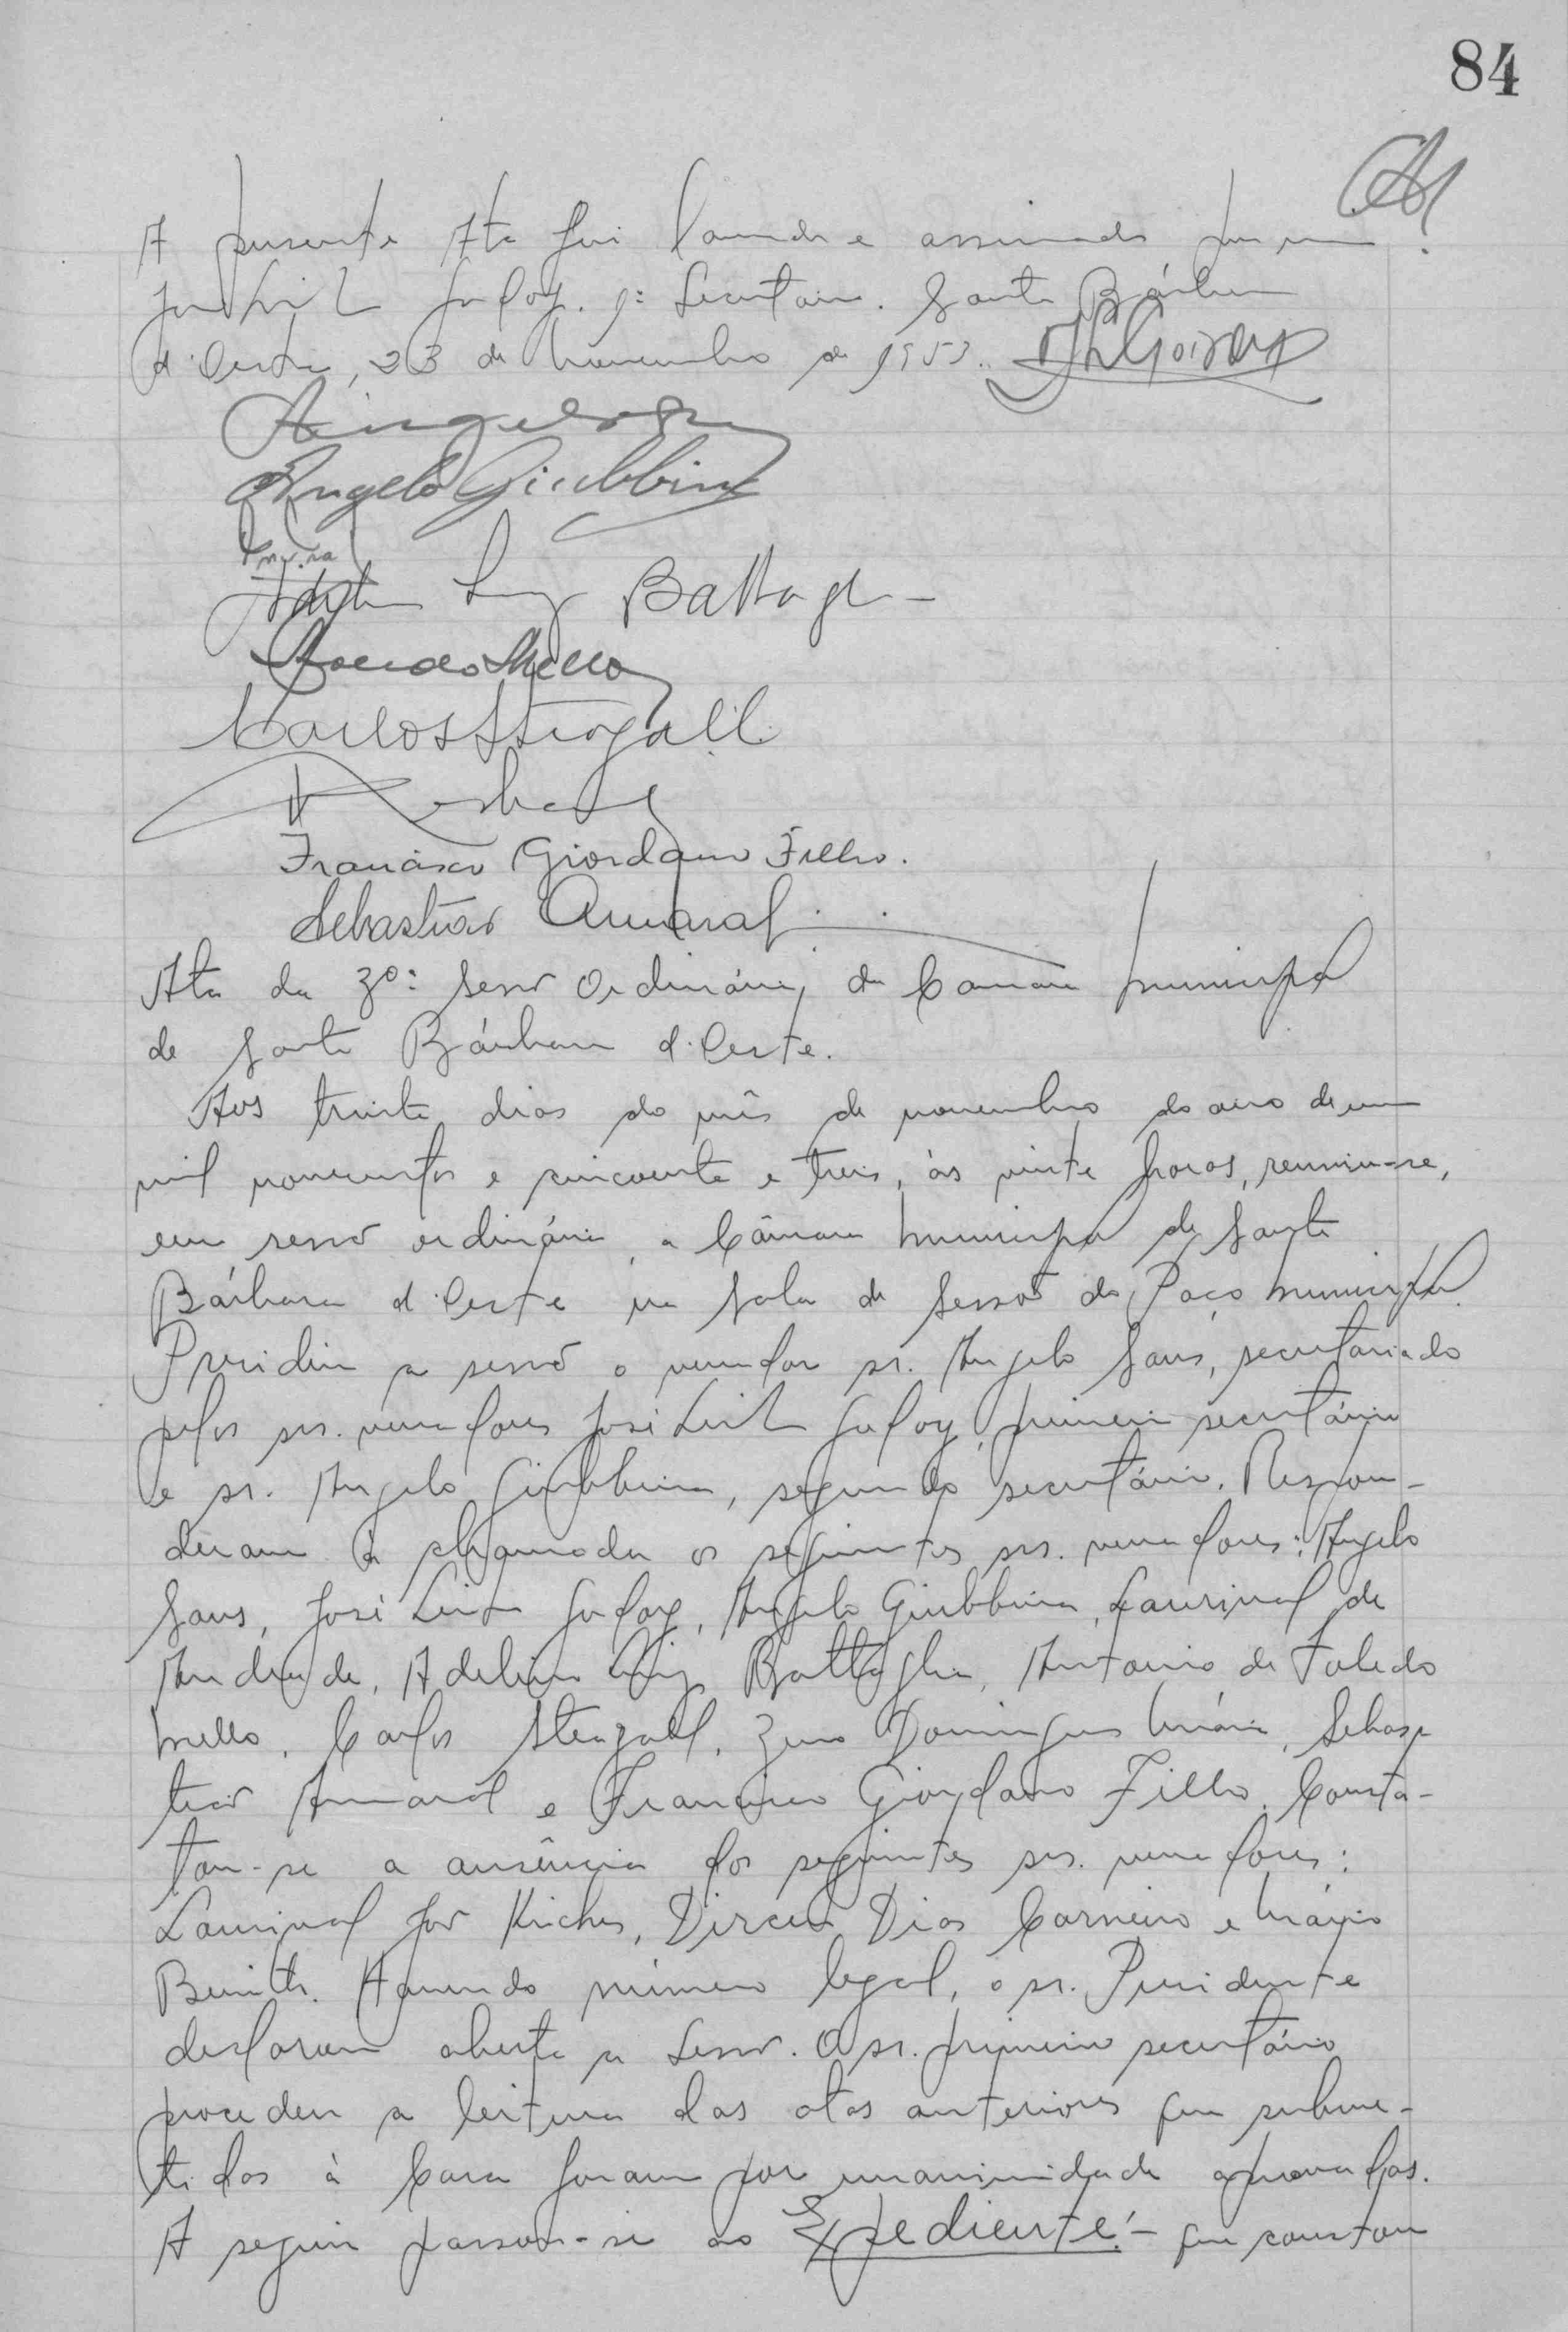 84
A presente Ata foi lavrada e assinada por mim
José Luiz Godoy. 1º Secretario. Santa Bárbara
d'Oeste, 23 de Novembro de 1953.
Angelo
Angelo Giubbina
Adelino Luiz Battagl
Mello
Carlos Steagall
Francisco Giordano Filho.
Sebastião Amaral
Ata da 30ª sessão Ordinária da Camara Municipal
de Santa Bárbara d'Oeste.
Aos trinta dias do mês de novembro do ano de um
mil novecentos e cincoenta e treis, às vinte horas, reuniu-se,
em sessão ordinária, a Câmara Municipal de Santa
Bárbara d'Oeste na Sala de Sessões do Paço Municipal
Presidiu a sessão o vereador sr. Angelo Sans, secretariado
pelos srs. vereadores José Luiz Godoy, primeiro secretário
e sr. Angelo Giubbina, segundo secretário. Respon-
deram à chamada os seguintes srs. vereadores: Angelo
Sans, José Luiz Godoy, Angelo Giubbina, Laurival de
Andrade, Adelino Luiz Battaglia, Antonio de Toledo
Mello, Carlos Steagall, Zeno Domingues Maia, Sebas-
tião Amaral e Francisco Giordano Filho. Consta-
tou-se a ausência dos seguintes srs. vereadores:
Laurival Dirceu Dias Carneiro e Mário
Havendo número legal, o sr. Presidente
declarou aberta a sessão. O sr. primeiro secretário
procedeu a leitura das atas anteriores que subme-
tidas à Casa foram por unanimidade aprovadas.
A seguir passou-se ao Expediente:- que constou